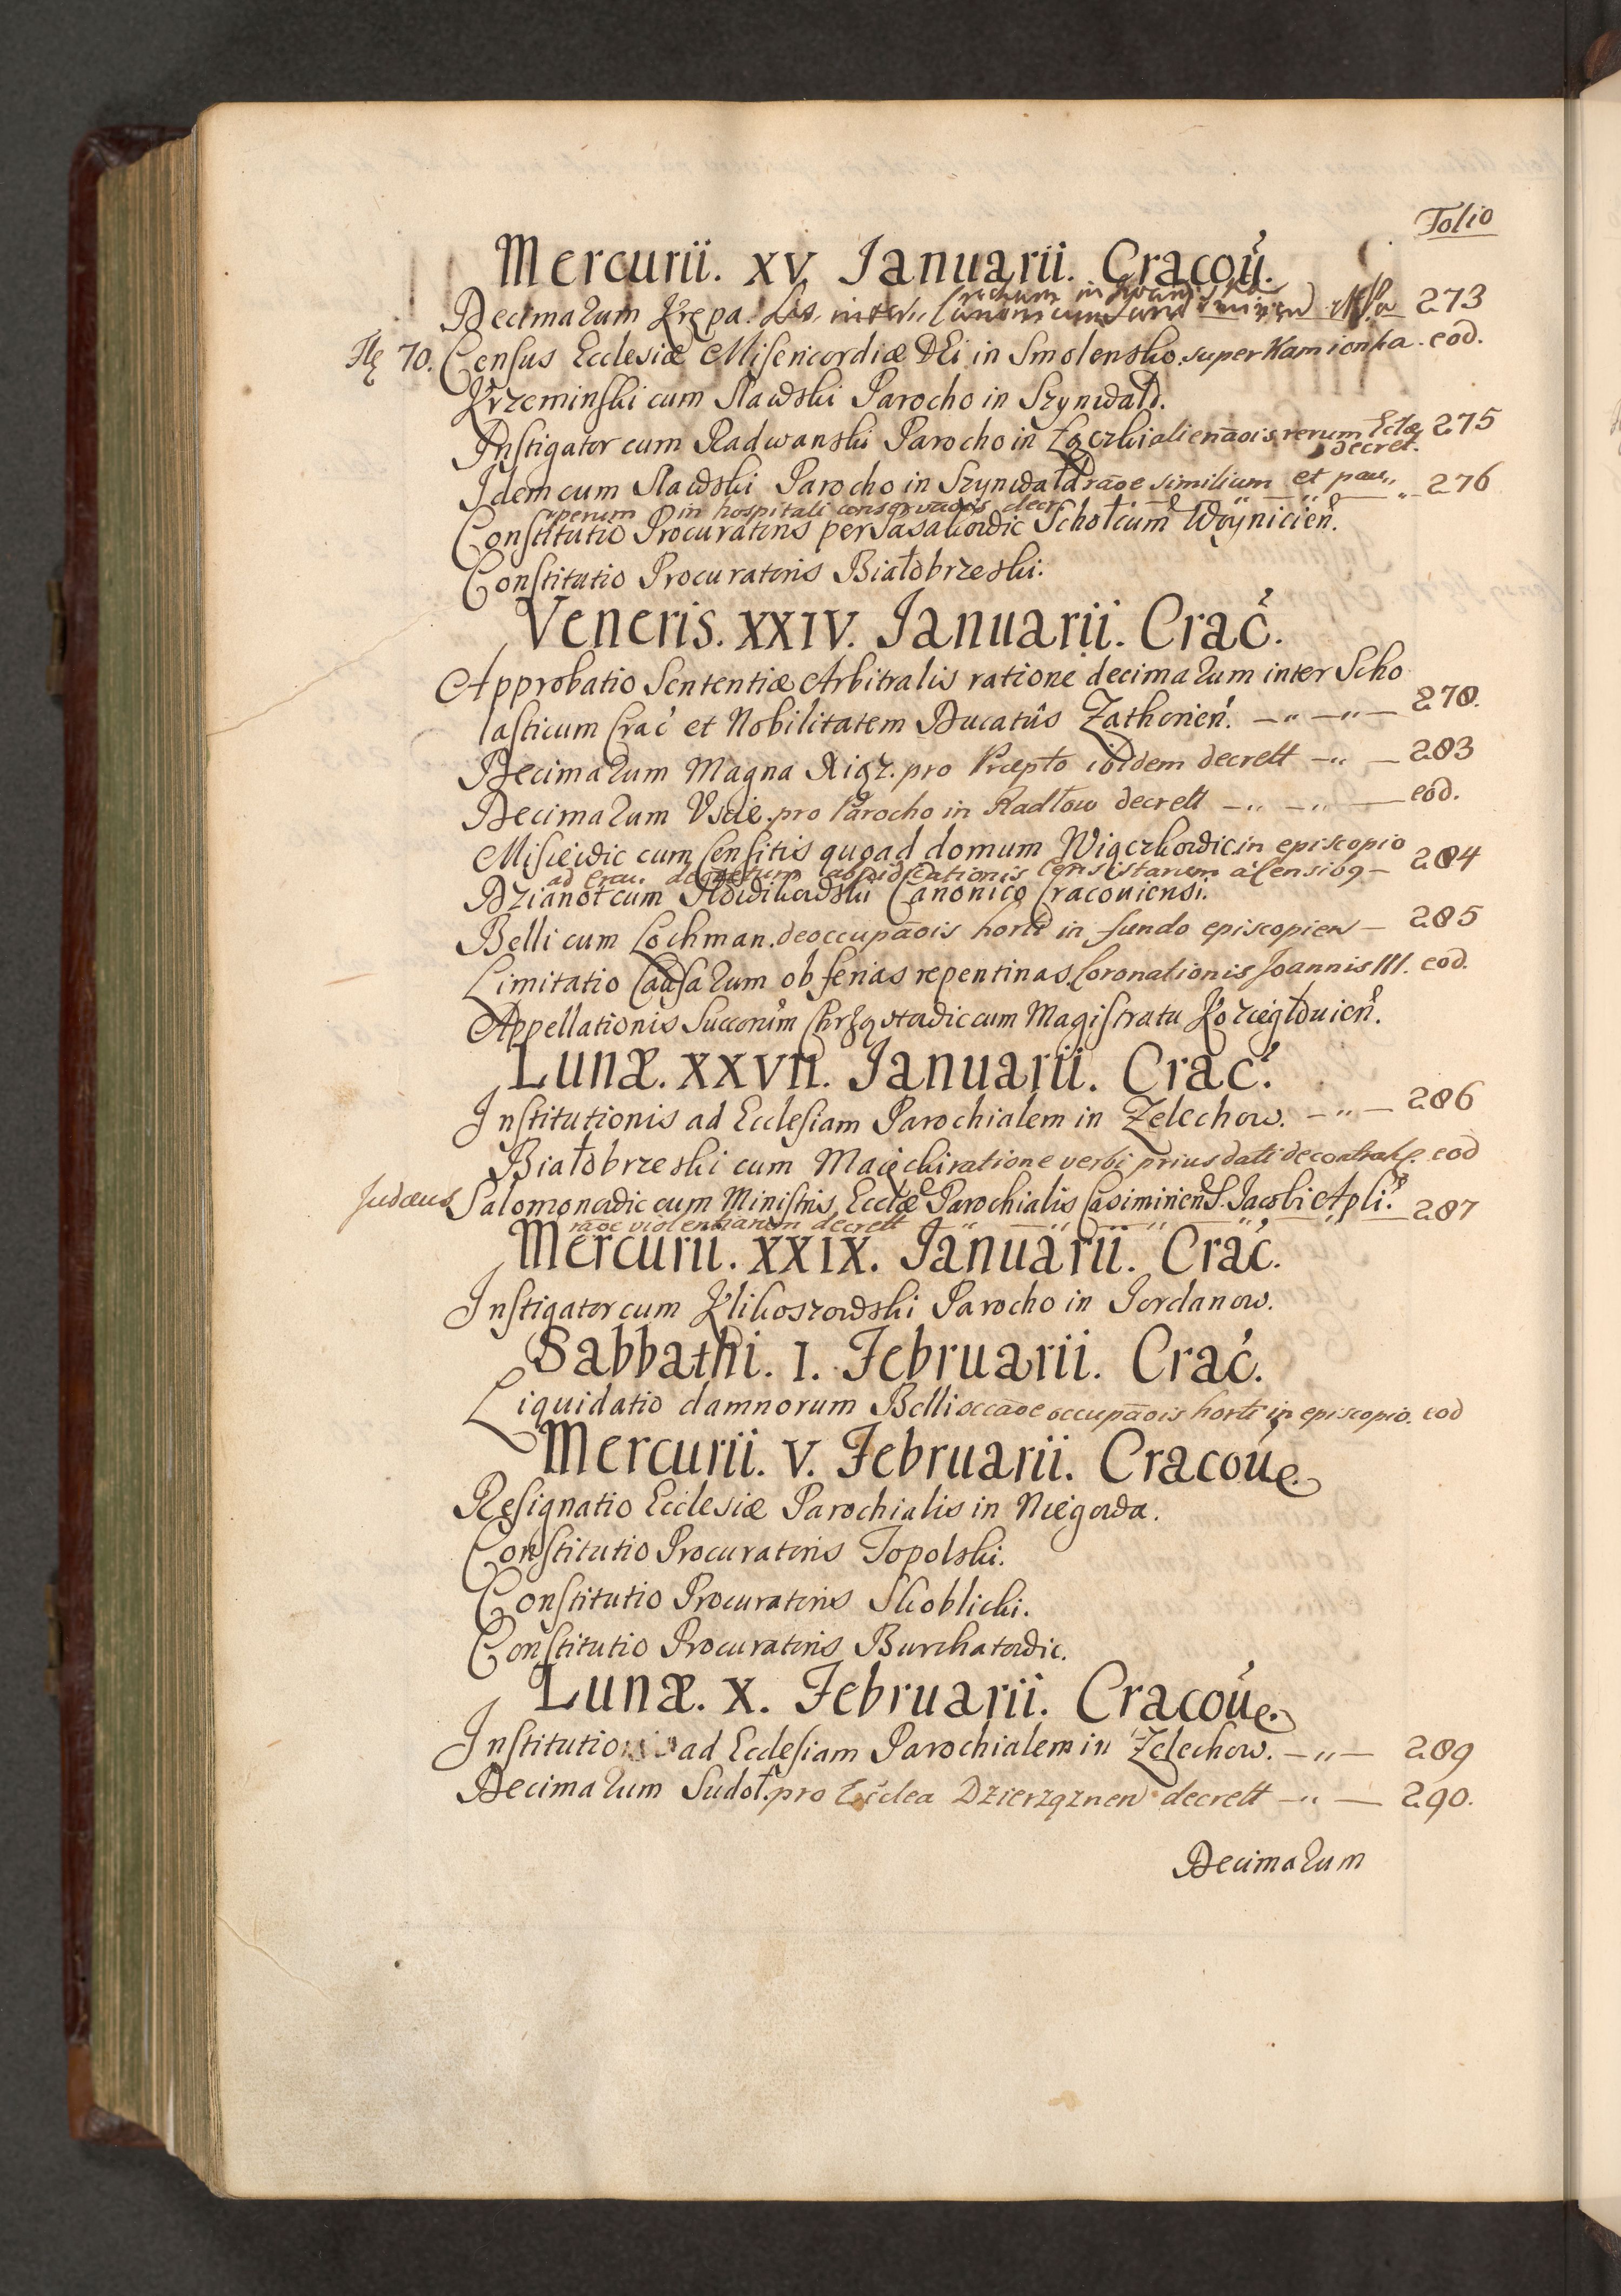 Folio
Mercurii. XV. Ianuarii. Cracoū.
Decimarum Krępa. Lis inter Canonicum 273
Flr 70. Census Ecclesiæ Misericordiæ DEi in Smolensko. super Kamionka. eod.
Krzeminski cum Slawski Parocho in Szynwald.
Instigator cum Radwanski Parocho in alienāois rerum Eclæ 275
decret.
Idem cum Slawski Parocho in Szynwald rāoe similium et pau„ 276
perum in hospitali conservāois decr
Constitutio Procuratoris per Sasakowic Scholcum Woynicien.
Constitutio Procuratoris Białobrzeski.
Veneris. XXIV. Ianuarii. Crac.
Approbatio Sententiæ Arbitralis ratione decimarum inter Scho
lasticum Crac et Nobilitatem Ducatûs Zathorien. 278.
Decimarum Magna Rigz. pro Præpto ibidem decrett 283
Decimarum Uscie. pro Parocho in Radłow decrett eod.
cum Censitis quoad domum Wigczkowic in episcopio
ad Crac. decretum 284
Dzianot cum Canonico Cracouiensi.
Belli cum Lochman. de occupāois horti in fundo episcopien 285
Limitatio Causarum ob ferias repentinas. Coronationis Joannis III. eod.
Appellationis Succorum Chrząstowic cum Magistratu Koziegłouien.
Lunæ. XXVII. Ianuarii. Crac.
Institutionis ad Ecclesiam Parochialem in Zelechow. 286
Białobrzeski cum Macięcki ratione verbi prius dati de contrah. eod
Judæus Salomonowic cum Ministris Ecclæ Parochialis Casimirien S. Jacobi Apli. 287
rāoe violentiarum decrett
Mercurii. XXIX. Ianuarii. Crac.
Instigator cum Klikoszowski Parocho in Jordanow.
Sabbathi. I. Februarii. Crac.
Liquidatio damnorum Belli occāoe occupāois horti in episcopio. eod
Mercurii. V. Februarii. Cracoue.
Resignatio Ecclesiæ Parochialis in Niegowa.
Constitutio Procuratoris Topolski.
Constitutio Procuratoris Skoblicki.
Constitutio Procuratoris Burchatowic.
Lunæ. X. Februarii. Cracoue.
Institutionis ad Ecclesiam Parochialem in Zelechow. 289
Decimarum Sudoł. pro Ecclea Dzierzqznen decrett 290.
Decimarum